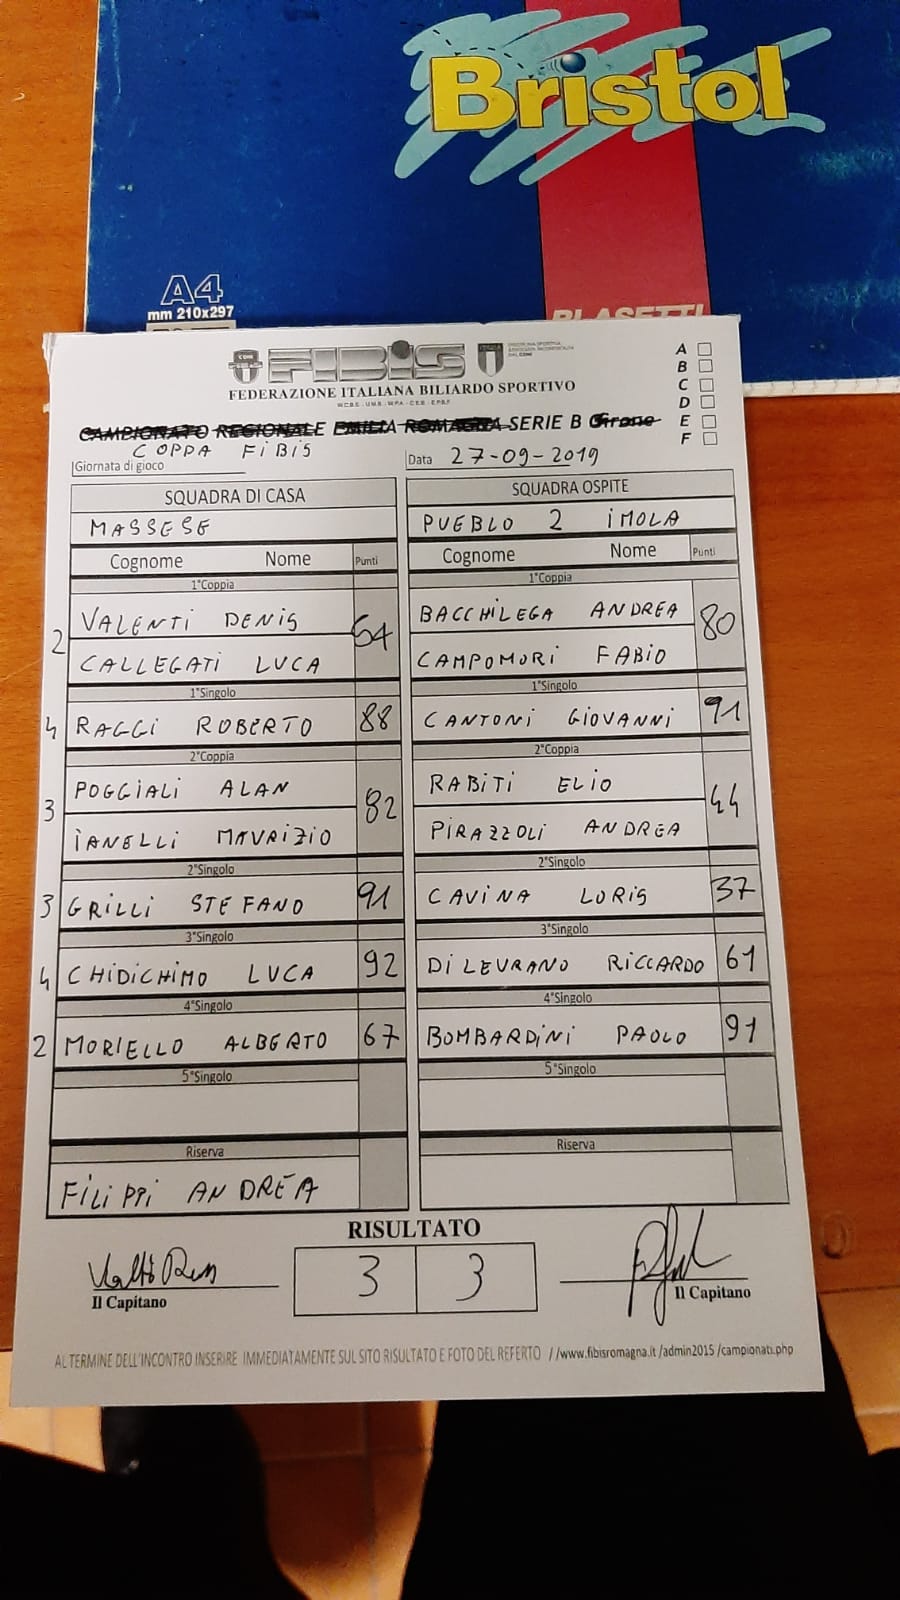 Bristol
A4
mm 210x297
BLASETTI
CONI FIBIS
FEDERAZIONE ITALIANA BILIARDO SPORTIVO
A
B
C
D
E
F
CAMPIONATO REGIONALE EMILIA ROMAGNA SERIE B Girone
COPPA FIBIS
Giornata di gioco
Data 27-09-2019
SQUADRA DI CASA
MASSESE
Cognome Nome Punti
1°Coppia
2 VALENTI DENIS 54
CALLEGATI LUCA
1°Singolo
4 RAGGI ROBERTO 88
2°Coppia
3 POGGIALI ALAN 82
IANELLI MAURIZIO
2°Singolo
3 GRILLI STEFANO 91
3°Singolo
4 CHIDICHIMO LUCA 92
4°Singolo
2 MORIELLO ALBERTO 67
5°Singolo
Riserva
FILIPPI ANDREA
SQUADRA OSPITE
PUEBLO 2 IMOLA
Cognome Nome Punti
1°Coppia
BACCHILEGA ANDREA 80
CAMPOMORI FABIO
1°Singolo
CANTONI GIOVANNI 91
2°Coppia
RABITI ELIO 44
PIRAZZOLI ANDREA
2°Singolo
CAVINA LORIS 37
3°Singolo
DI LEVRANO RICCARDO 61
4°Singolo
BOMBARDINI PAOLO 91
5°Singolo
Riserva
RISULTATO
3 3
Il Capitano
Il Capitano
AL TERMINE DELL'INCONTRO INSERIRE IMMEDIATAMENTE SUL SITO RISULTATO E FOTO DEL REFERTO //www.fibisromagna.it /admin2015 /campionati.php